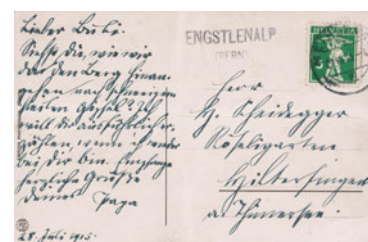 Lieber Bubi.
Siehst Du, wie wir
da den Berg hinan-
gehen nach
will dir ausführlich er-
zählen, wenn ich wieder
bei dir bin. Empfange
herzliche Grüsse
deines Papa
28. Juli 1915.
ENGSTLENALP
(BERN)
HELVETIA
Herr
H. Scheidegger
Röseligarten
Hilterfingen
a. Thunersee.